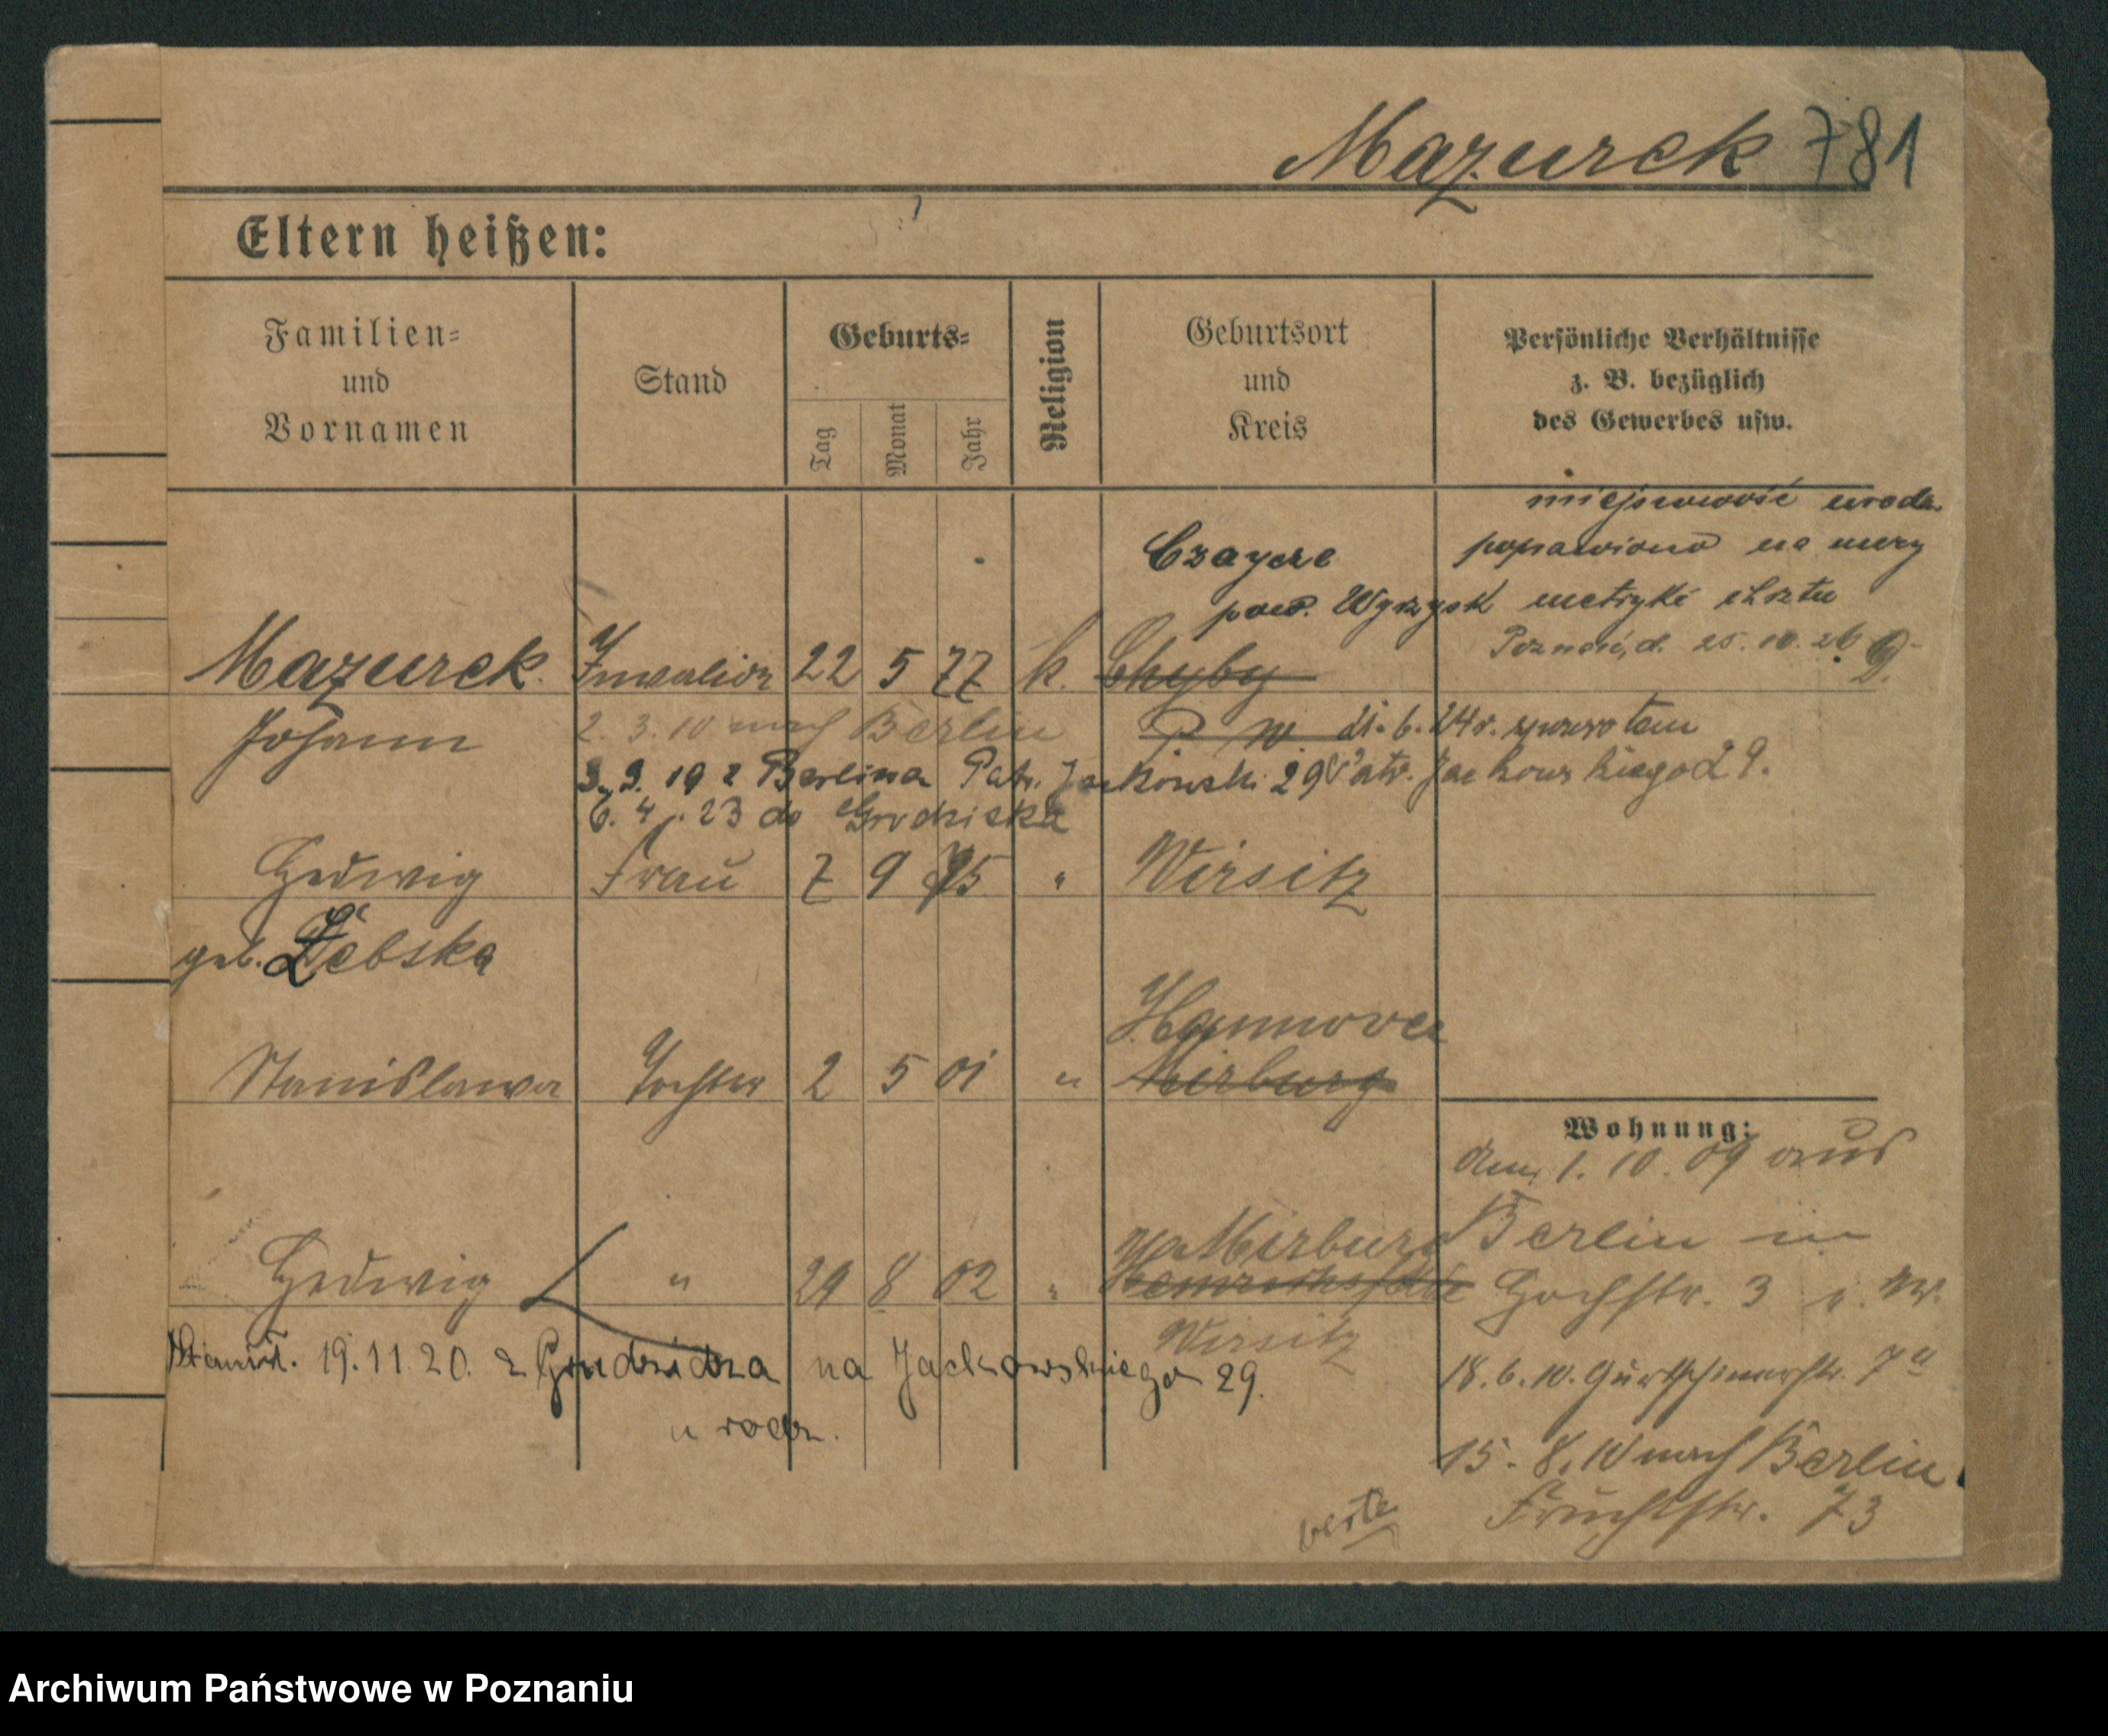 Mazurek 781
Eltern heißen:
Familien-
und
Vornamen
Stand
Geburts-
Tag
Monat
Jahr
Religion
Geburtsort
und
Kreis
Persönliche Verhältnisse
z. B. bezüglich
des Gewerbes usw.
miejscowość urodz.
Czaycze poprawiono na mocy
pow. Wyrzysk metryki chrztu
Poznań, d. 25. 10. 26
Mazurek Invalide 22 5 77 k. Chyby
Johann 2. 3. 10 nach Berlin P. W. 21. 6. 24 r. spowrotem
3. 3. 19 z Berlina Patr. Jackowsk. 29 Patr. Jackowskiego 29.
6. 4. 23 do Grodziska
Hedwig Frau 7 9 75 " Wirsitz
geb. Dębska
Hannover
Stanislawa Tochter 2 5 01 " Misburg
Wohnung:
den 1. 10. 09 aus
Misburg Berlin in
Hedwig " 29 8 02 " Hochstr. 3 b. M.
Wirsitz
19. 11. 20. z Grudziądza na Jackowskiego 29.
18. 6. 10. Gurtschinerstr. 7a
u rodz.
15. 8. 10 nach Berlin
Fruchtstr. 73
Archiwum Państwowe w Poznaniu